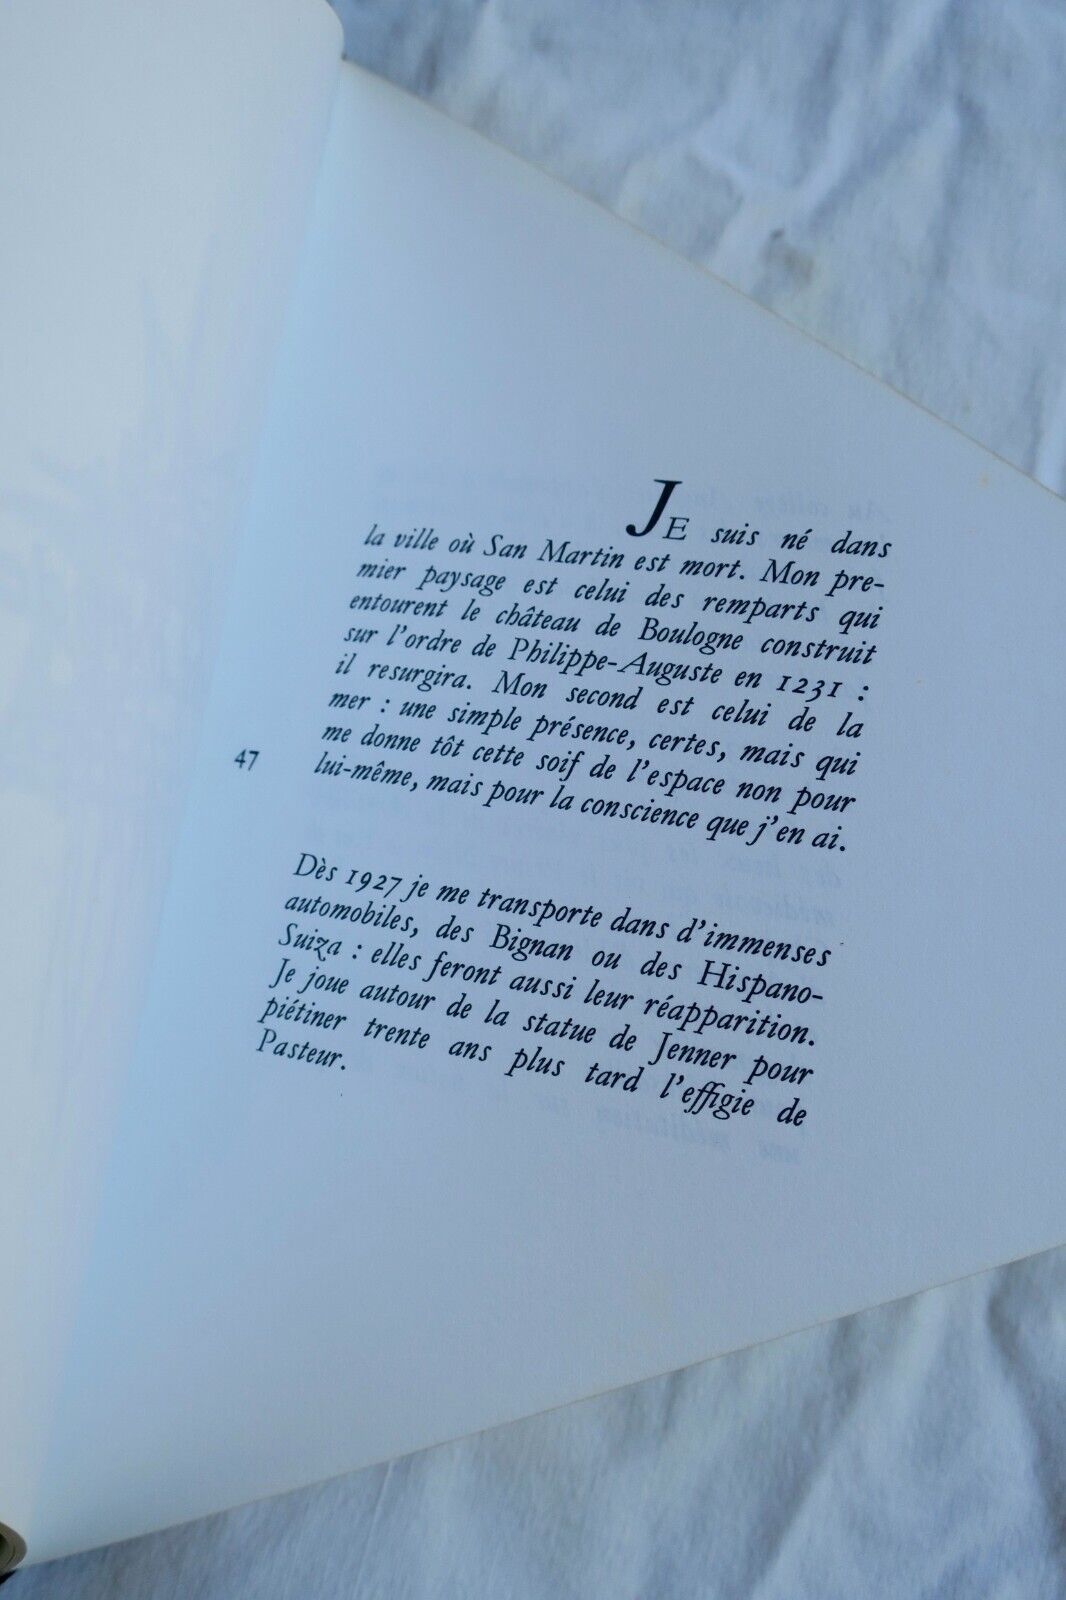 JE suis né dans
la ville où San Martin est mort. Mon pre-
mier paysage est celui des remparts qui
entourent le château de Boulogne construit
sur l'ordre de Philippe-Auguste en 1231 :
il resurgira. Mon second est celui de la
mer : une simple présence, certes, mais qui
me donne tôt cette soif de l'espace non pour
lui-même, mais pour la conscience que j'en ai.
47
Dès 1927 je me transporte dans d'immenses
automobiles, des Bignan ou des Hispano-
Suiza : elles feront aussi leur réapparition.
Je joue autour de la statue de Jenner pour
piétiner trente ans plus tard l'effigie de
Pasteur.